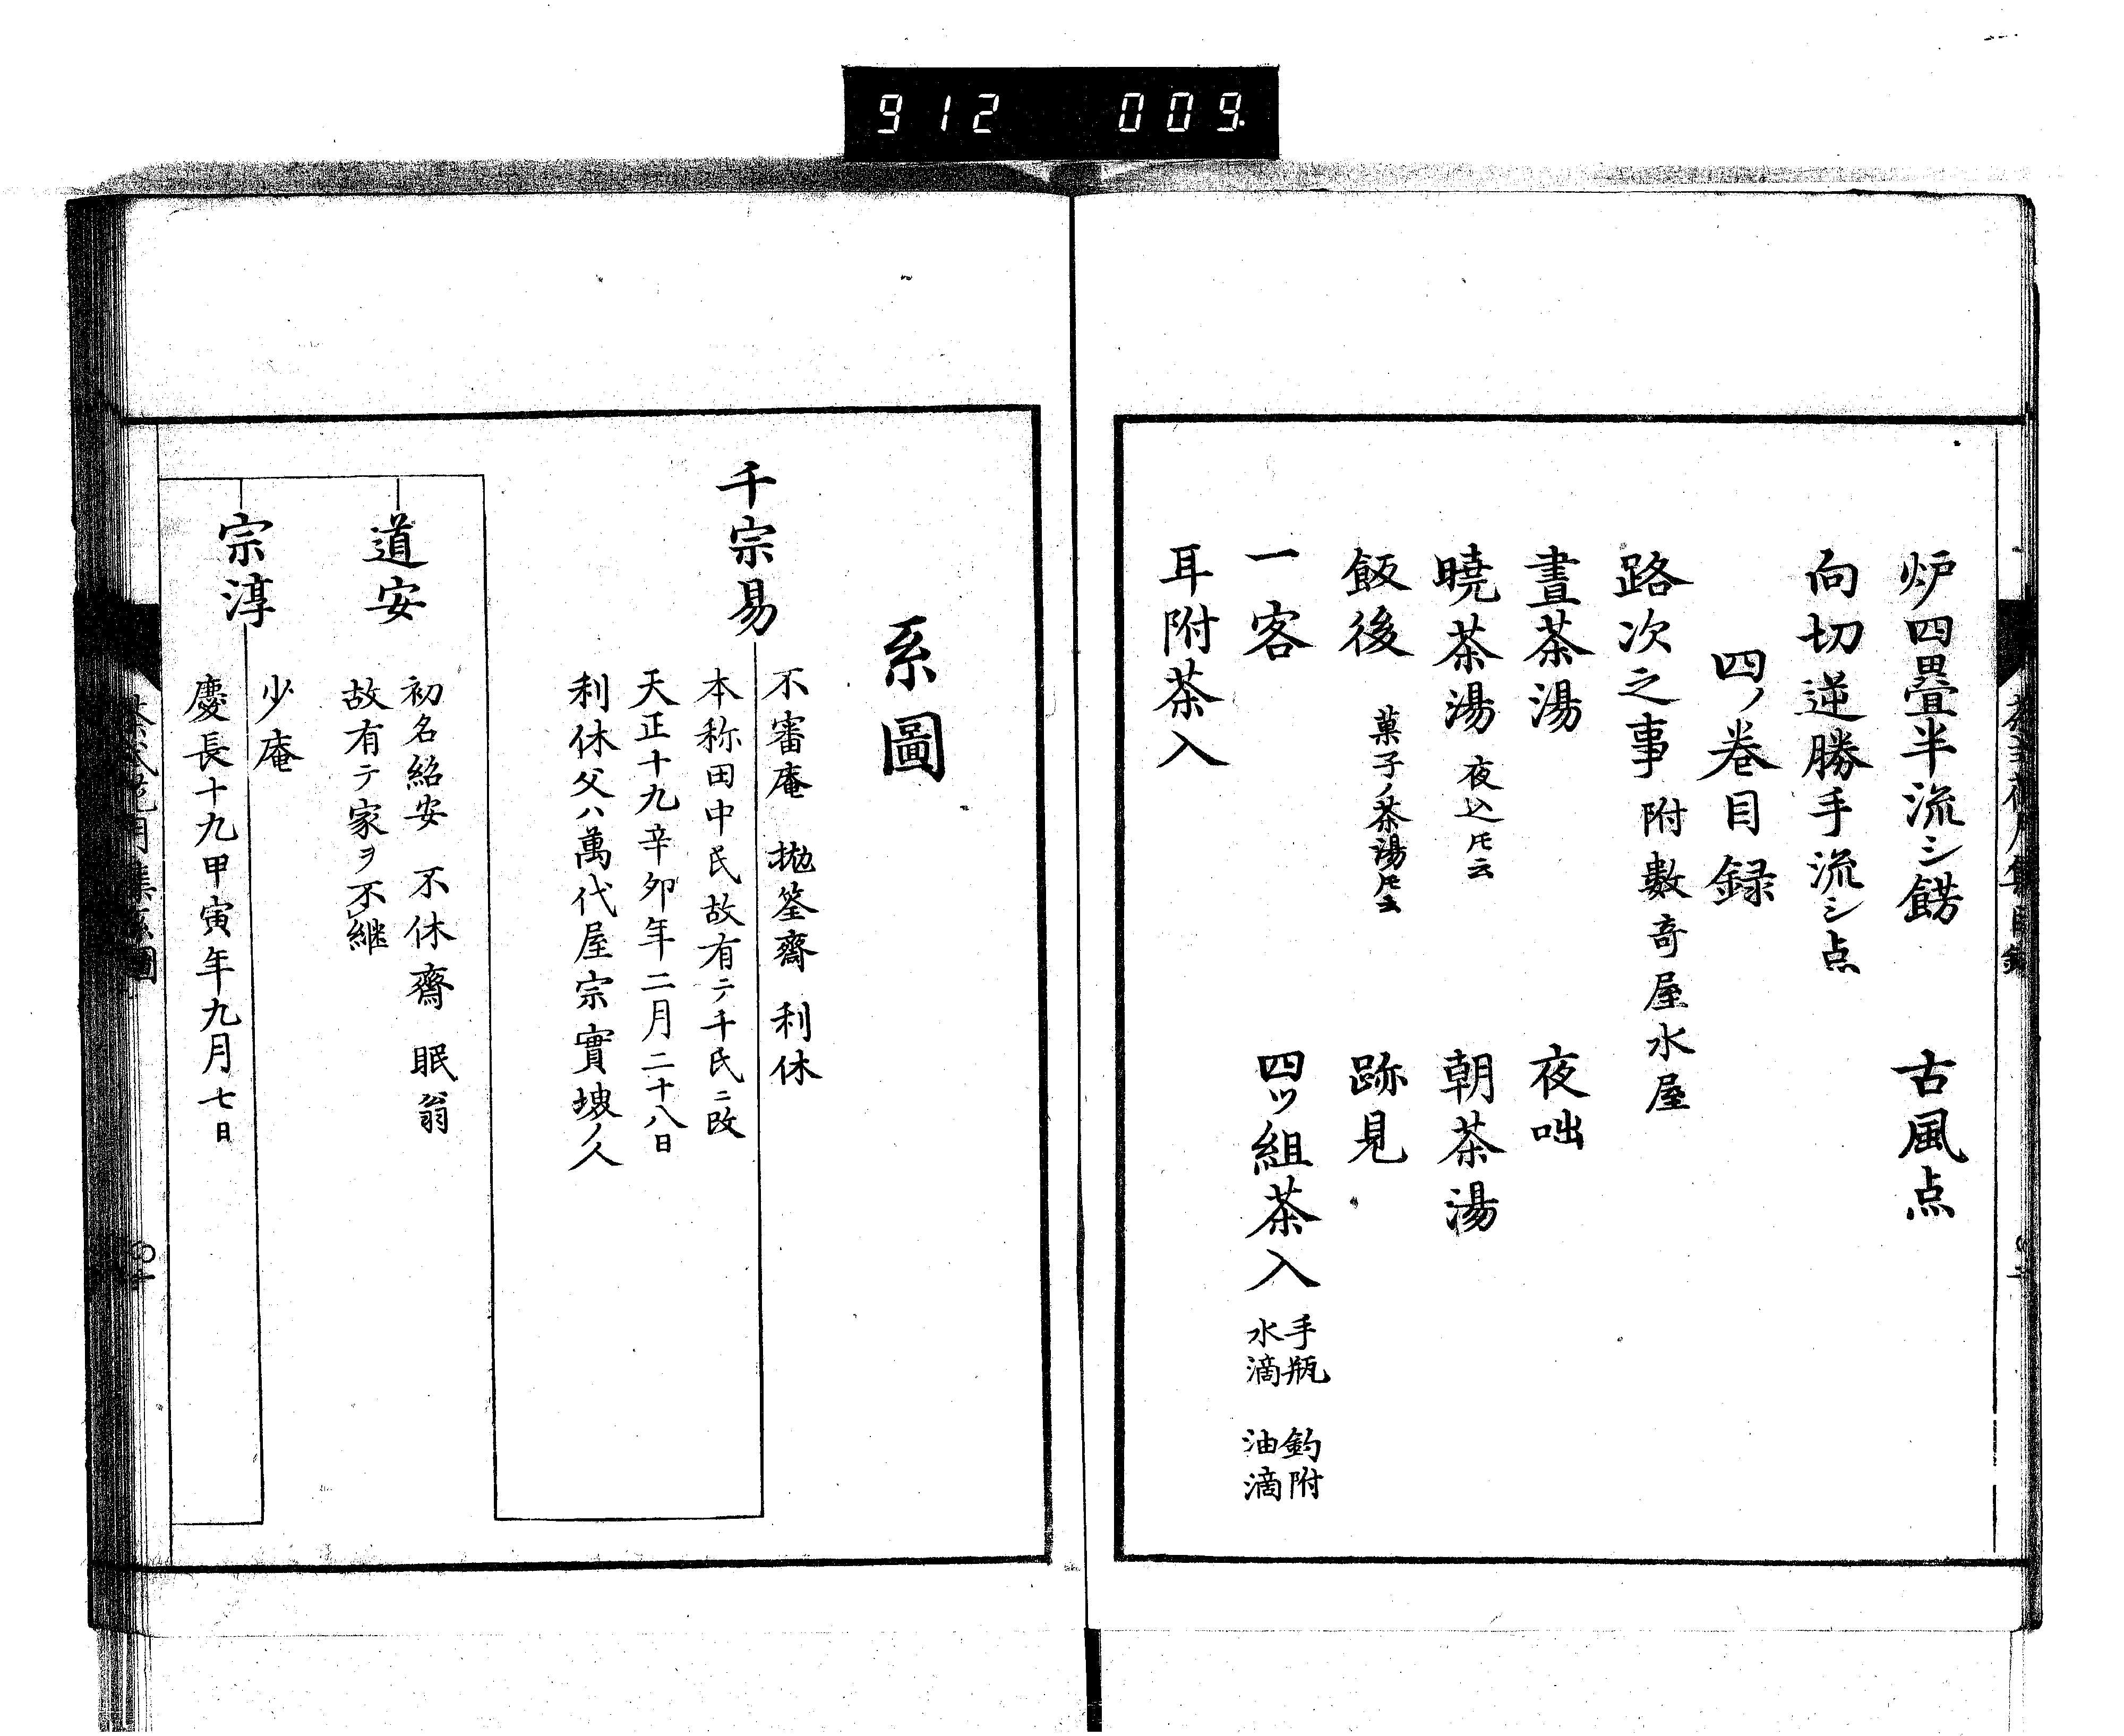 912 009
炉四畳半流シ餝 古風点
向切逆勝手流シ点
四ノ巻目録
路次之事 附数奇屋水屋
晝茶湯 夜咄
曉茶湯 夜込トモ云 朝茶湯
飯後 菓子ノ茶湯トモ云 跡見
一客 四ツ組茶入 手瓶 釣附 水滴 油滴
耳附茶入
系圖
千宗易
不審庵 抛筌齋 利休
本称田中氏故有テ千氏ニ改
天正十九辛卯年二月二十八日
利休父ハ萬代屋宗實堺ノ人
道安
初名紹安 不休齋 眠翁
故有テ家ヲ不継
宗淳
少庵
慶長十九甲寅年九月七日